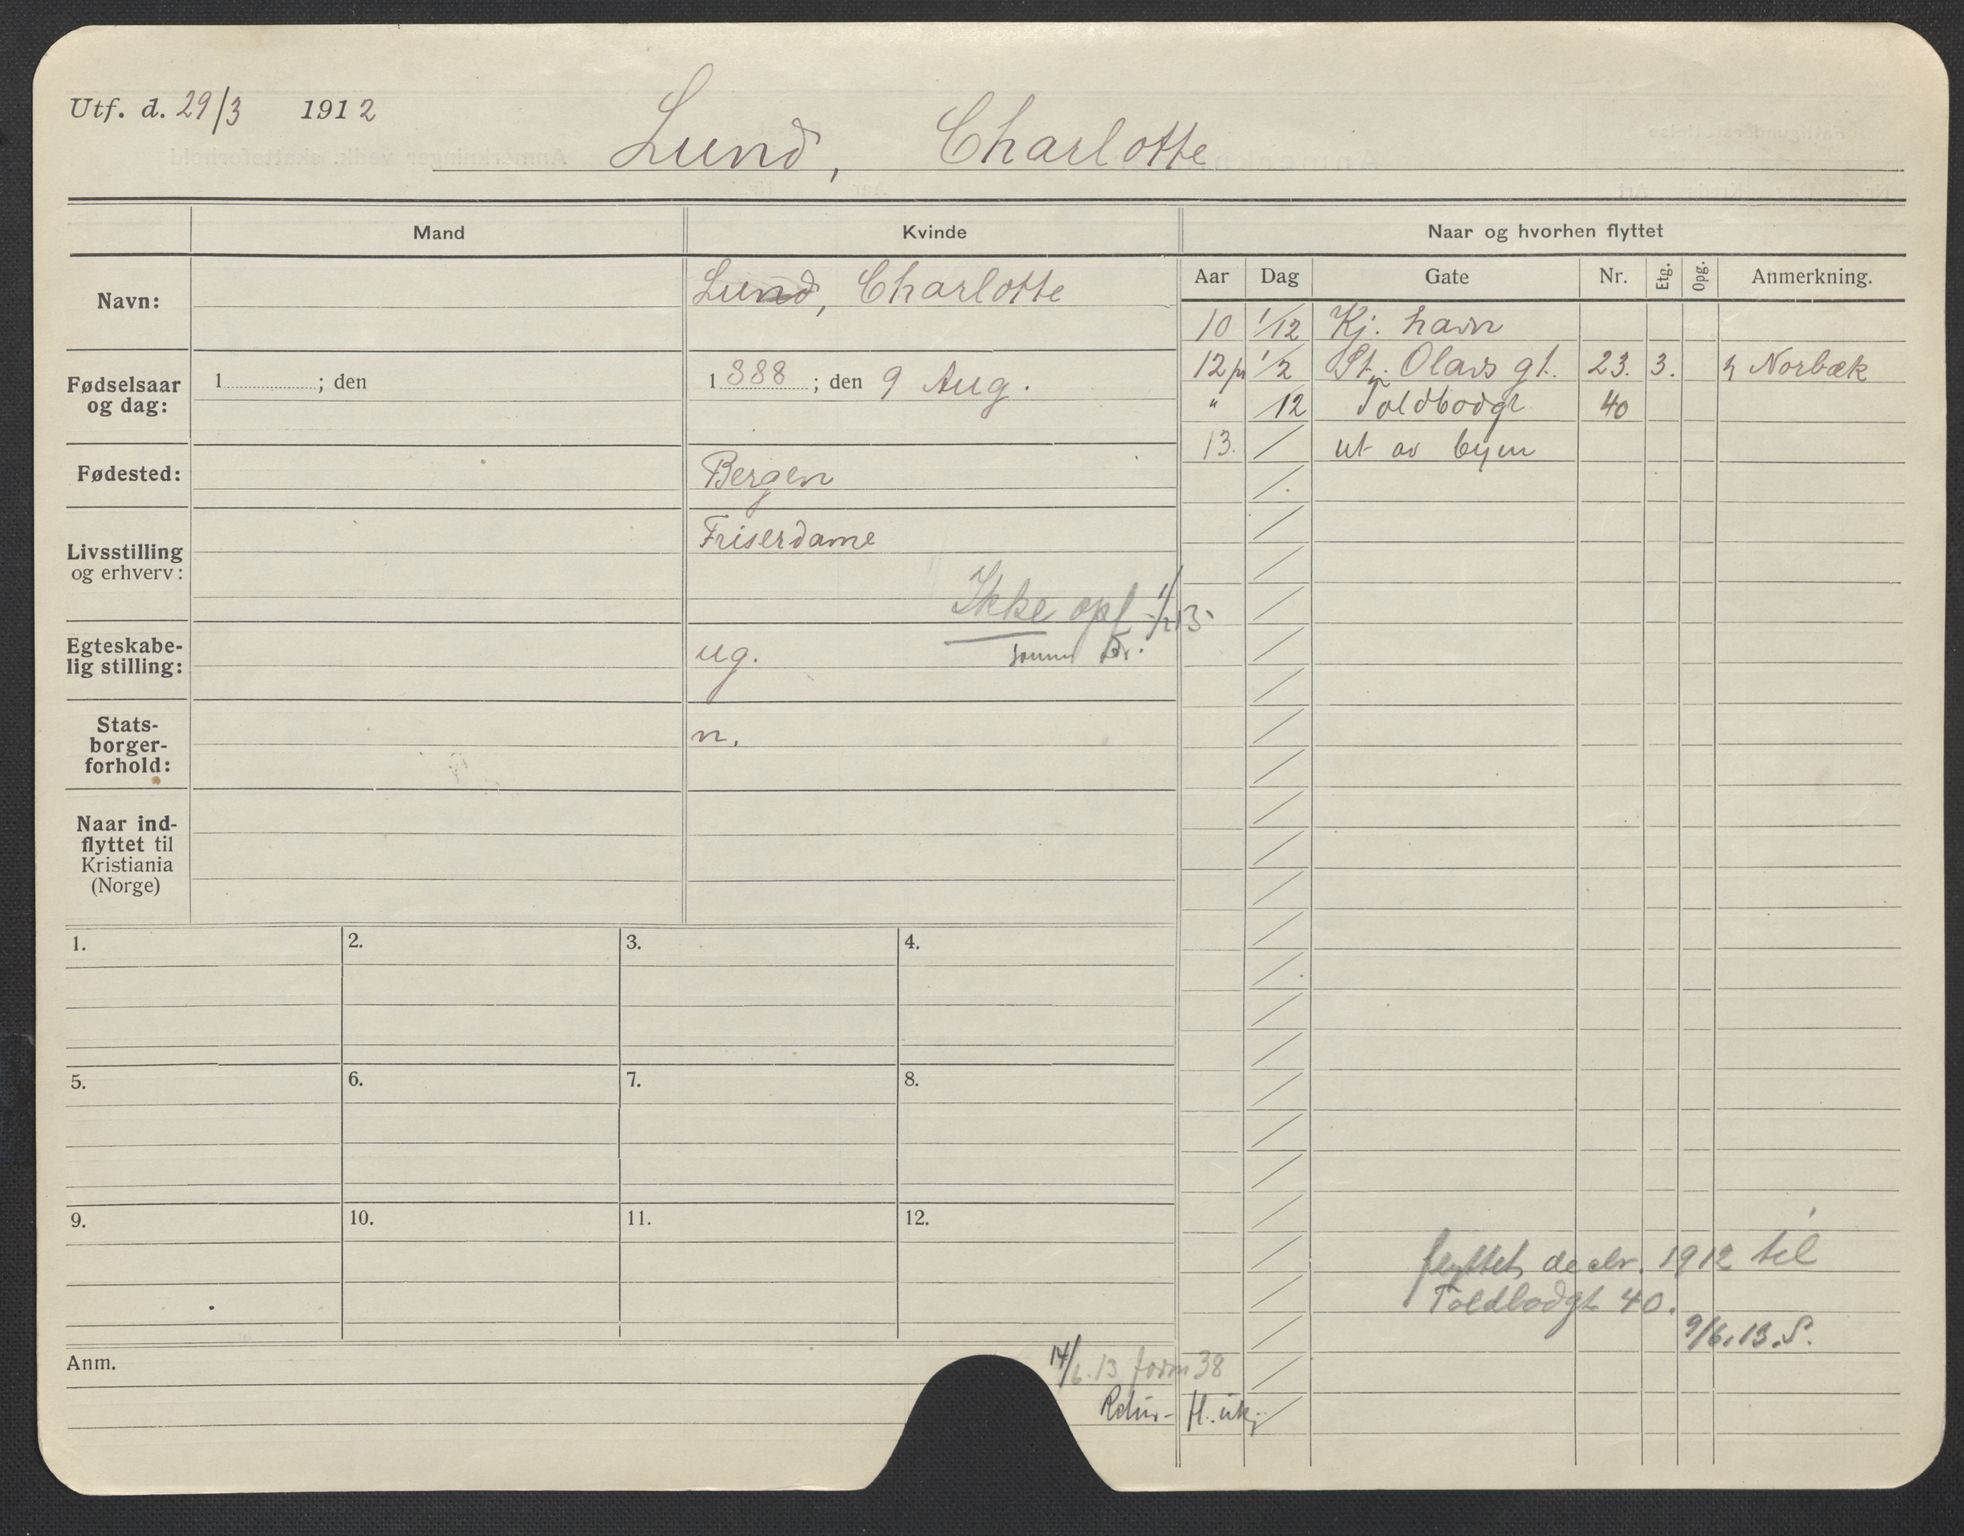 Utf. d. 29/3 1912
Lund, Charlotte
Mand
Kvinde
Naar og hvorhen flyttet
Navn:
Lund, Charlotte
Fødselsaar og dag:
1 ; den
1 888 ; den 9 Aug.
Fødested:
Bergen
Livsstilling og erhverv:
Friserdame
Ikke opf 1/2 13
ug.
Egteskabe-
lig stilling:
Stats-
borger-
forhold:
n.
Naar ind-
flyttet til
Kristiania
(Norge)
Aar Dag Gate Nr. Etg. Opg. Anmerkning.
10 1/12 Kj. havn
12 1/2 St. Olavs gt. 23. 3. Norbæk
" /12 Toldbodgt 40
13. / ut av byen
1. 2. 3. 4.
5. 6. 7. 8.
9. 10. 11. 12.
flyttet decbr. 1912 til
Toldbodgt 40.
9/6.13.S.
Anm.
14/6.13 form 38
Retur- H. ukj.